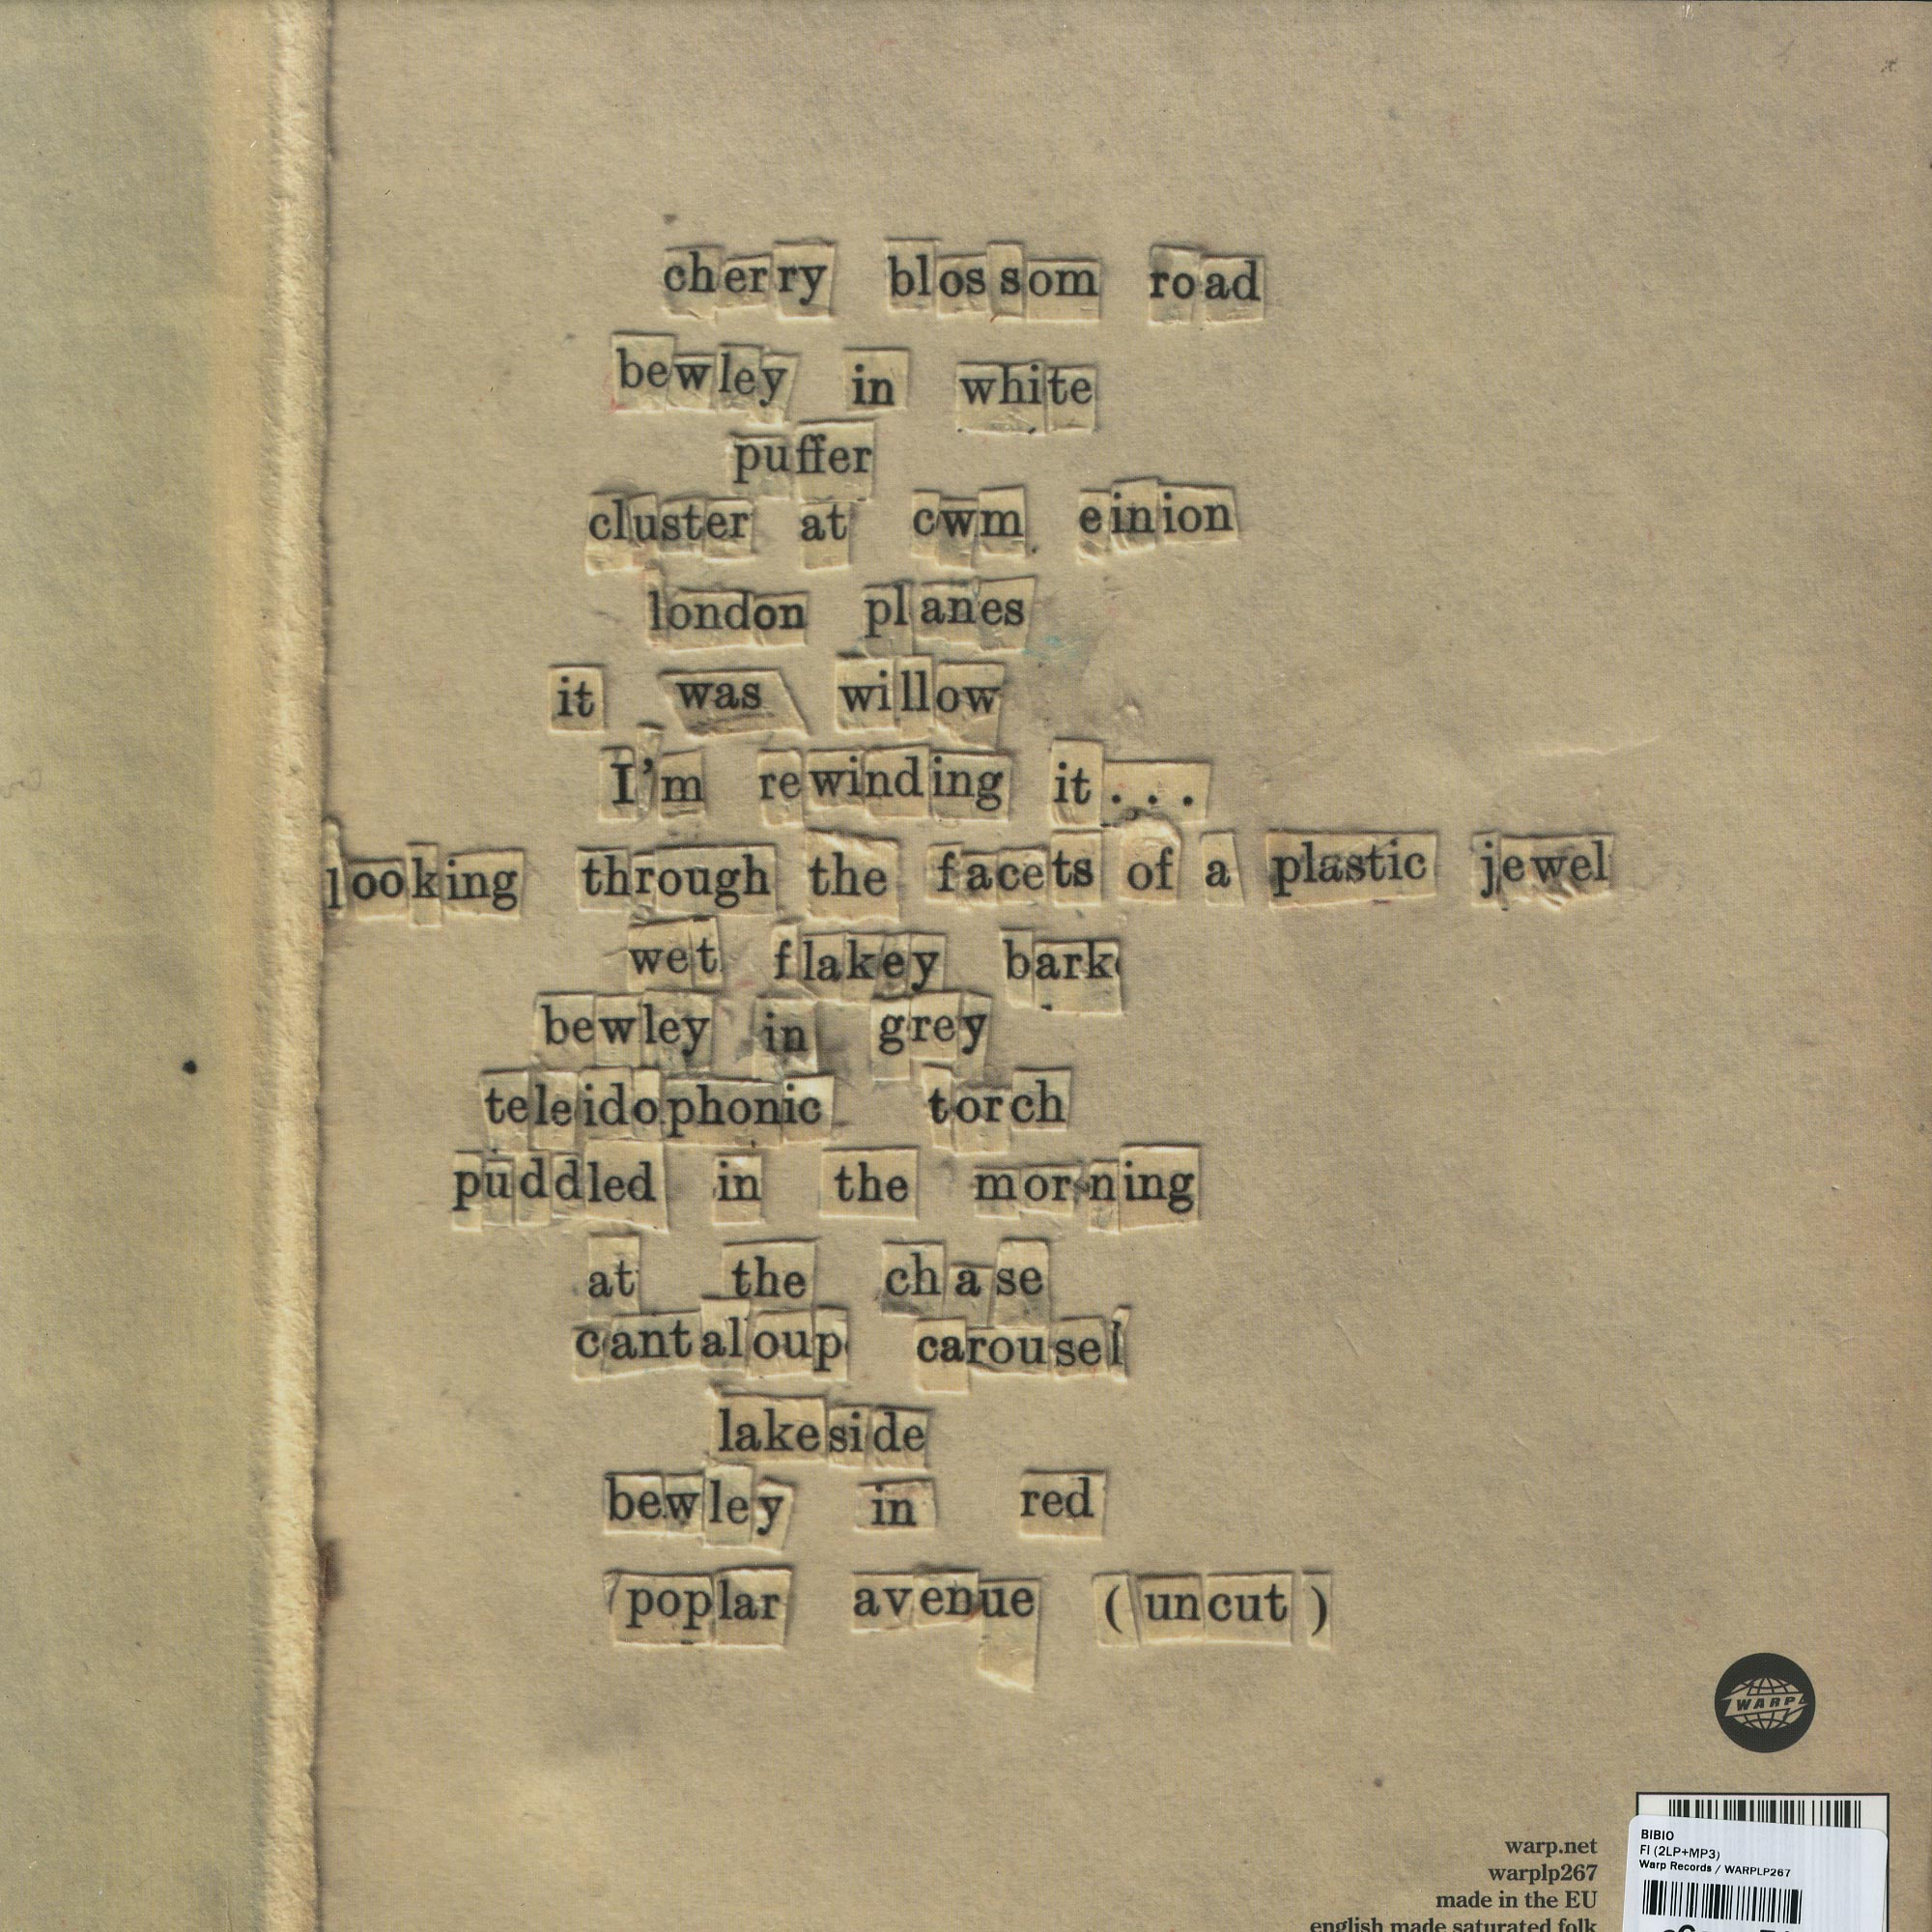 cherry blossom road
bewley in white
puffer
cluster at cwm einion
london planes
it was willow
I'm rewinding it...
looking through the facets of a plastic jewel
wet flakey bark
bewley in grey
teleidophonic torch
puddled in the morning
at the chase
cantaloup carousel
lakeside
bewley in red
poplar avenue (uncut)
WARP
warp.net
warplp267
made in the EU
english made saturated folk
BIBIO
FI (2LP+MP3)
Warp Records / WARPLP267